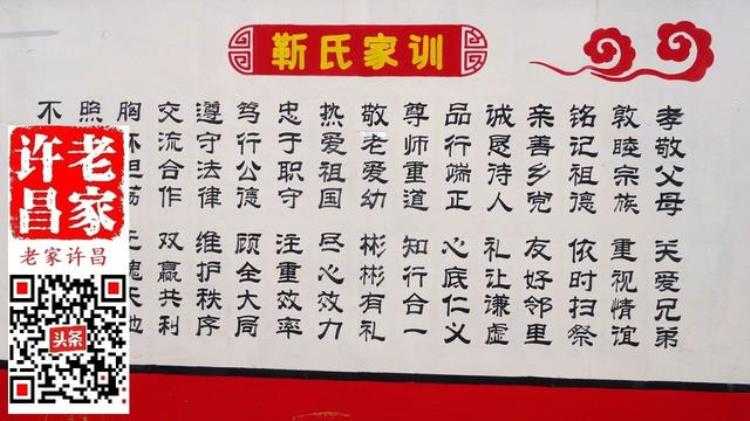 靳氏家训
孝敬父母 关爱兄弟
敦睦宗族 重视情谊
铭记祖德 依时扫祭
亲善乡党 友好邻里
诚恳待人 礼让谦虚
品行端正 心底仁义
尊师重道 知行合一
敬老爱幼 彬彬有礼
热爱祖国 尽心效力
忠于职守 注重效率
笃行公德 顾全大局
遵守法律 维护秩序
交流合作 双赢共利
胸怀坦荡 无愧天地
照
不
老家许昌
老家许昌
头条